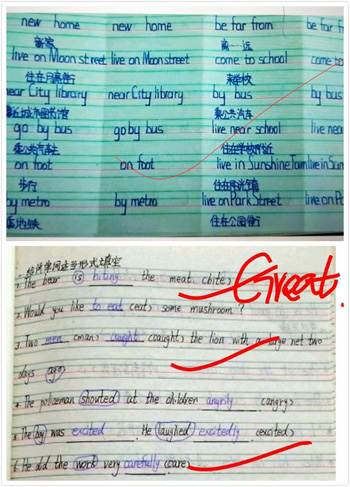 new home new home be far from be far f
新家 离…远
live on Moon street live on Moon street come to school come to
住在月亮街 来学校
near City library near City library by bus by bus
乘公共汽车
go by bus go by bus live near school live nea
乘公共汽车去 住在学校附近
on foot on foot live in Sunshine Town live in Sun
步行 住在阳光镇
by metro by metro live on Park Street live on Pa
住在公园街
用所给词适当形式填空
1. The bear is biting the meat. (bite)
Great.
2. Would you like to eat (eat) some mushroom?
3. Two men (man) caught (caught) the lion with a large net two
days ago.
4. The policeman shouted at the children angrily (angry)
5. The boy was excited. He laughed excitedly (excited)
6. He did the work very carefully (care)